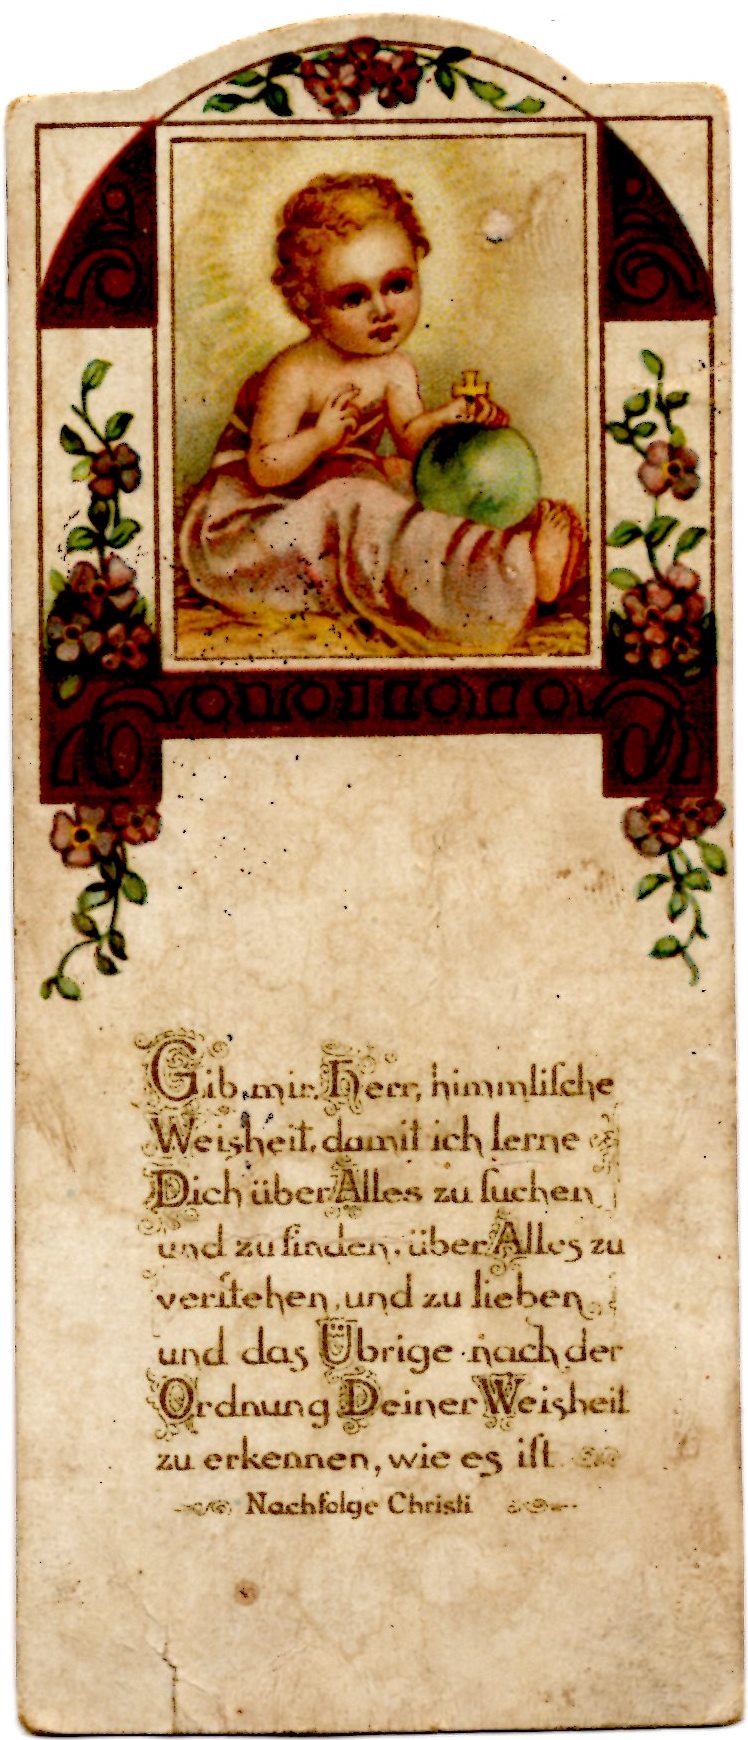 Gib mir, Herr, himmlische
Weisheit, damit ich lerne
Dich über Alles zu suchen
und zu finden, über Alles zu
verstehen, und zu lieben
und das Übrige nach der
Ordnung Deiner Weisheit
zu erkennen, wie es ist
Nachfolge Christi